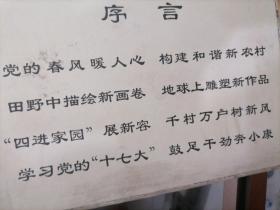 序言
党的春风暖人心 构建和谐新农村
田野中描绘新画卷 地球上雕塑新作品
“四进家园”展新容 千村万户树新风
学习党的“十七大” 鼓足干劲奔小康